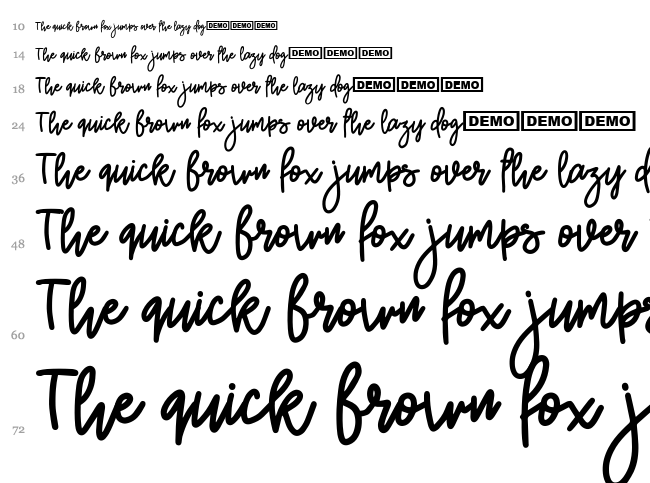 10 The quick brown fox jumps over the lazy dog DEMO DEMO DEMO
14 The quick brown fox jumps over the lazy dog DEMO DEMO DEMO
18 The quick brown fox jumps over the lazy dog DEMO DEMO DEMO
24 The quick brown fox jumps over the lazy dog DEMO DEMO DEMO
36 The quick brown fox jumps over the lazy d
48 The quick brown fox jumps over
60 The quick brown fox jumps
72 The quick brown fox j